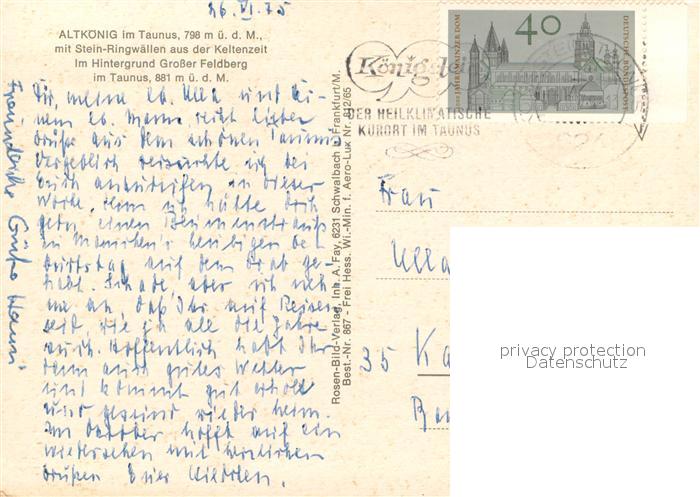 26.VI.75
ALTKÖNIG im Taunus, 798 m ü. d. M.,
mit Stein-Ringwällen aus der Keltenzeit
Im Hintergrund Großer Feldberg
im Taunus, 881 m ü. d. M.
Dir, meine lb. Ulla und Dei-
nem lb. Manne recht liebe
Grüße aus dem schönen Taunus
Vergeblich versuchte ich bei
Euch anzurufen in dieser
Woche. Denn ich hätte
gern einen Blumenstrauß
zu heutigen Ge-
burtstag auf dem Grab ge-
habt. Schade, aber ich neh-
me an daß Ihr auf Reisen
seid, wie ja all die Jahre
auch. Hoffentlich habt Ihr
denn auch gutes Wetter
und kommt gut erholt
und gesund wieder heim.
Im Oktober hofft auf ein
Wiedersehen mit herzlichen
Grüßen
Grüße Hanni
Rosen-Bild-Verlag, Inh. A. Fay, 6231 Schwalbach b. Frankfurt/M.
Best.-Nr. 867 - Frei Hess. Wi.-Min. f. Aero-Lux Nr. 812/65
Königstein
DER HEILKLIMATISCHE
KURORT IM TAUNUS
40
1000 JAHRE MAINZER DOM
DEUTSCHE BUNDESPOST
Frau
Ulla
35 Ka
privacy protection
Datenschutz